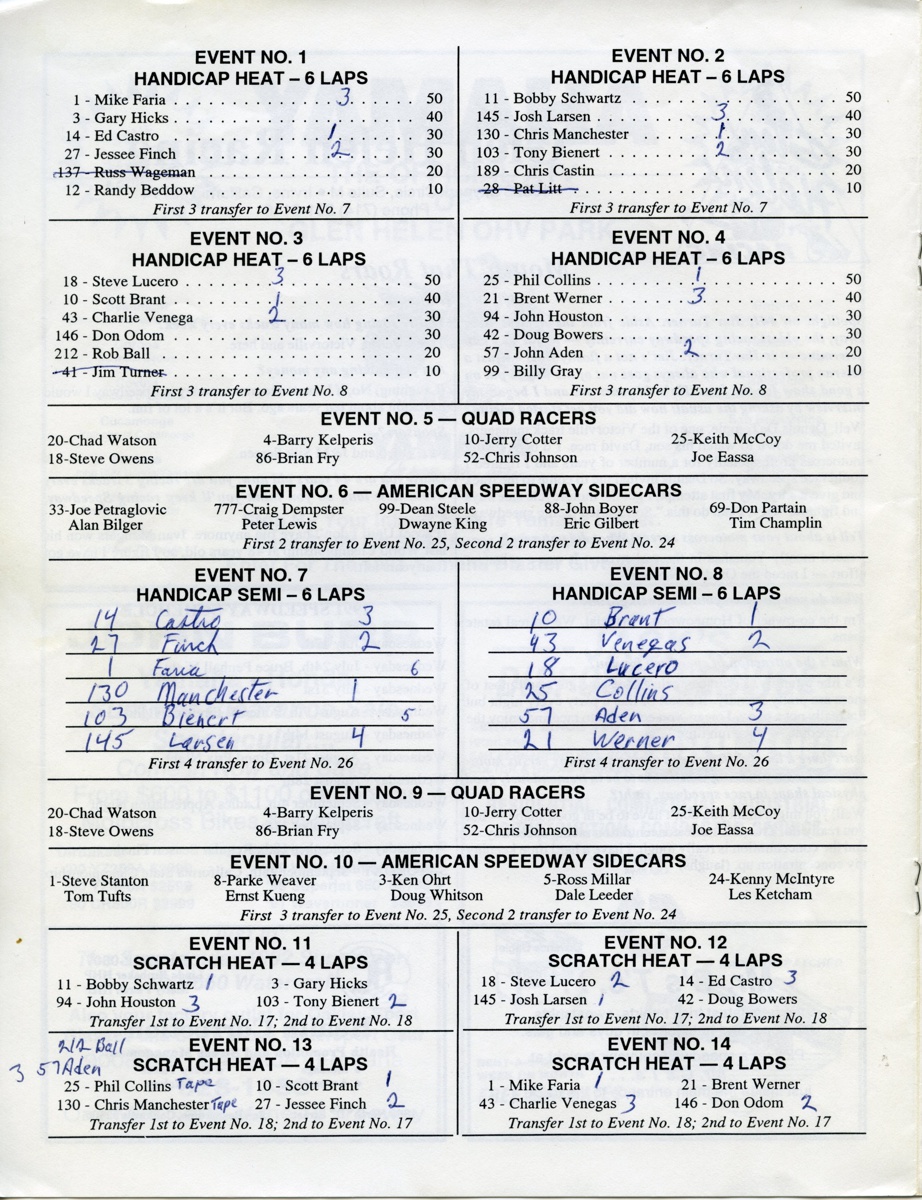 EVENT NO. 1
HANDICAP HEAT – 6 LAPS
1 - Mike Faria . . . 3 . . . 50
3 - Gary Hicks . . . 40
14 - Ed Castro . . . 1 . . . 30
27 - Jessee Finch . . . 2 . . . 30
137 - Russ Wageman . . . 20
12 - Randy Beddow . . . 10
First 3 transfer to Event No. 7
EVENT NO. 2
HANDICAP HEAT – 6 LAPS
11 - Bobby Schwartz . . . 50
145 - Josh Larsen . . . 3 . . . 40
130 - Chris Manchester . . . 1 . . . 30
103 - Tony Bienert . . . 2 . . . 30
189 - Chris Castin . . . 20
28 - Pat Litt . . . 10
First 3 transfer to Event No. 7
EVENT NO. 3
HANDICAP HEAT – 6 LAPS
18 - Steve Lucero . . . 3 . . . 50
10 - Scott Brant . . . 1 . . . 40
43 - Charlie Venega . . . 2 . . . 30
146 - Don Odom . . . 30
212 - Rob Ball . . . 20
41 - Jim Turner . . . 10
First 3 transfer to Event No. 8
EVENT NO. 4
HANDICAP HEAT – 6 LAPS
25 - Phil Collins . . . 1 . . . 50
21 - Brent Werner . . . 3 . . . 40
94 - John Houston . . . 30
42 - Doug Bowers . . . 30
57 - John Aden . . . 2 . . . 20
99 - Billy Gray . . . 10
First 3 transfer to Event No. 8
EVENT NO. 5 – QUAD RACERS
20-Chad Watson 4-Barry Kelperis 10-Jerry Cotter 25-Keith McCoy
18-Steve Owens 86-Brian Fry 52-Chris Johnson Joe Eassa
EVENT NO. 6 – AMERICAN SPEEDWAY SIDECARS
33-Joe Petraglovic 777-Craig Dempster 99-Dean Steele 88-John Boyer 69-Don Partain
Alan Bilger Peter Lewis Dwayne King Eric Gilbert Tim Champlin
First 2 transfer to Event No. 25, Second 2 transfer to Event No. 24
EVENT NO. 7
HANDICAP SEMI – 6 LAPS
14 Castro 3
27 Finch 2
1 Faria 6
130 Manchester 1
103 Bienert 5
145 Larsen 4
First 4 transfer to Event No. 26
EVENT NO. 8
HANDICAP SEMI – 6 LAPS
10 Brant 1
43 Venegas 2
18 Lucero
25 Collins
57 Aden 3
21 Werner 4
First 4 transfer to Event No. 26
EVENT NO. 9 – QUAD RACERS
20-Chad Watson 4-Barry Kelperis 10-Jerry Cotter 25-Keith McCoy
18-Steve Owens 86-Brian Fry 52-Chris Johnson Joe Eassa
EVENT NO. 10 — AMERICAN SPEEDWAY SIDECARS
1-Steve Stanton 8-Parke Weaver 3-Ken Ohrt 5-Ross Millar 24-Kenny McIntyre
Tom Tufts Ernst Kueng Doug Whitson Dale Leeder Les Ketcham
First 3 transfer to Event No. 25, Second 2 transfer to Event No. 24
EVENT NO. 11
SCRATCH HEAT – 4 LAPS
11 - Bobby Schwartz 1 3 - Gary Hicks
94 - John Houston 3 103 - Tony Bienert 2
Transfer 1st to Event No. 17; 2nd to Event No. 18
EVENT NO. 12
SCRATCH HEAT – 4 LAPS
18 - Steve Lucero 2 14 - Ed Castro 3
145 - Josh Larsen 1 42 - Doug Bowers
Transfer 1st to Event No. 17; 2nd to Event No. 18
212 Ball
3 57 Aden
EVENT NO. 13
SCRATCH HEAT – 4 LAPS
25 - Phil Collins Tape 10 - Scott Brant 1
130 - Chris Manchester Tape 27 - Jessee Finch 2
Transfer 1st to Event No. 18; 2nd to Event No. 17
EVENT NO. 14
SCRATCH HEAT – 4 LAPS
1 - Mike Faria 1 21 - Brent Werner
43 - Charlie Venegas 3 146 - Don Odom 2
Transfer 1st to Event No. 18; 2nd to Event No. 17